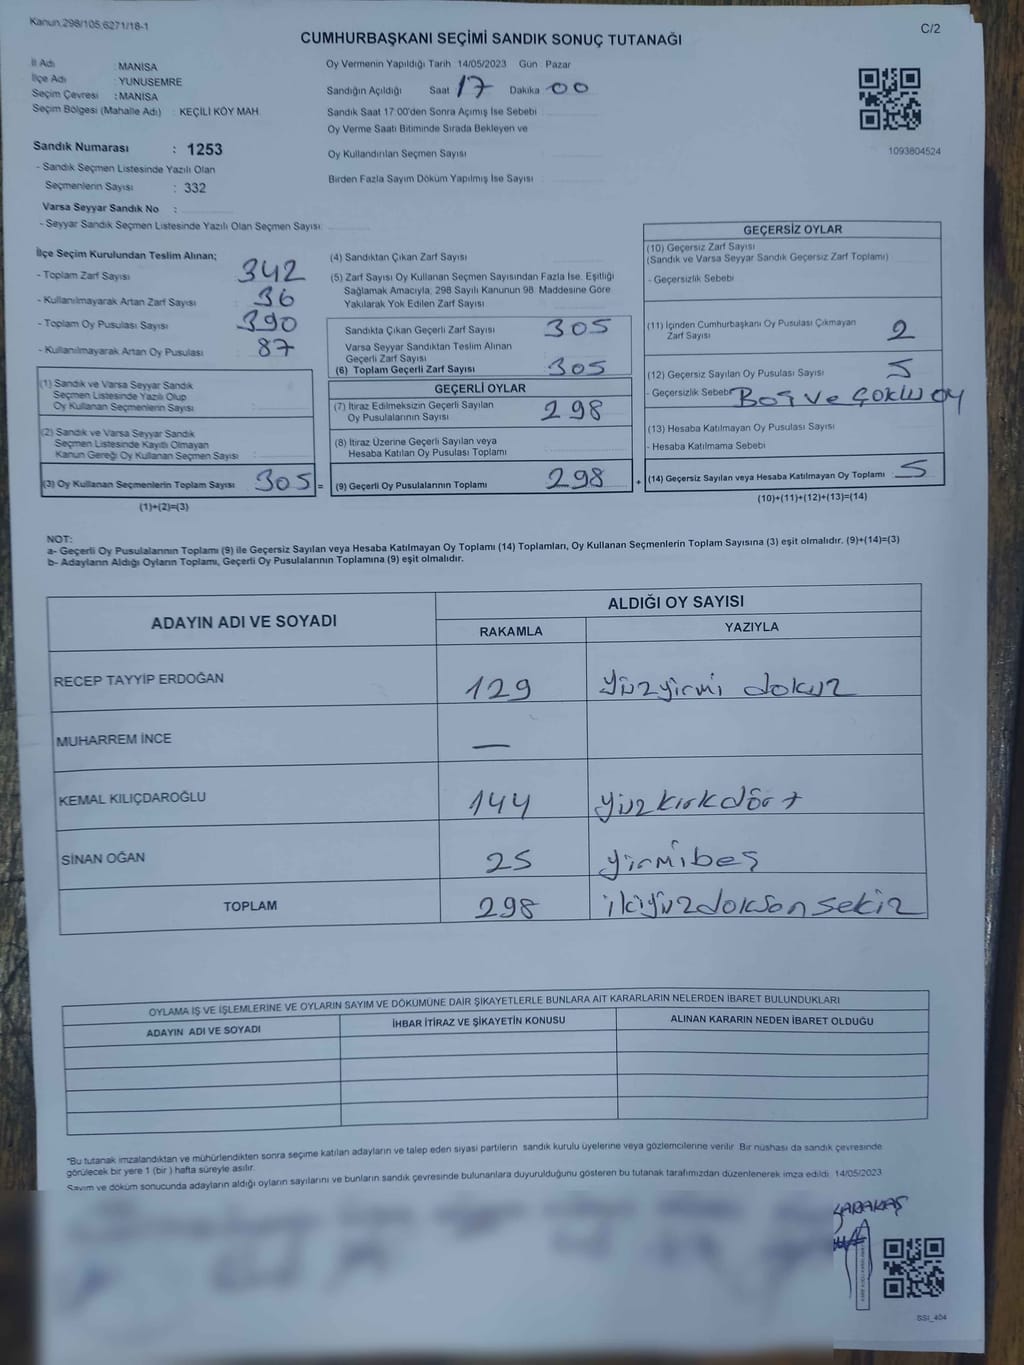 Kanun.298/105,6271/18-1
C/2
CUMHURBAŞKANI SEÇİMİ SANDIK SONUÇ TUTANAĞI
İl Adı : MANİSA
İlçe Adı : YUNUSEMRE
Seçim Çevresi : MANİSA
Seçim Bölgesi (Mahalle Adı) : KEÇİLİ KÖY MAH.
Oy Vermenin Yapıldığı Tarih 14/05/2023 Gün : Pazar
Sandığın Açıldığı Saat 17 Dakika 00
Sandık Saat 17:00'den Sonra Açımış İse Sebebi
Oy Verme Saati Bitiminde Sırada Bekleyen ve
Oy Kullandırılan Seçmen Sayısı
Birden Fazla Sayım Döküm Yapılmış İse Sayısı
1093804524
Sandık Numarası : 1253
- Sandık Seçmen Listesinde Yazılı Olan
Seçmenlerin Sayısı : 332
Varsa Seyyar Sandık No :
- Seyyar Sandık Seçmen Listesinde Yazılı Olan Seçmen Sayısı:
İlçe Seçim Kurulundan Teslim Alınan;
- Toplam Zarf Sayısı 342
- Kullanılmayarak Artan Zarf Sayısı 36
- Toplam Oy Pusulası Sayısı 390
- Kullanılmayarak Artan Oy Pusulası : 87
(1) Sandık ve Varsa Seyyar Sandık
Seçmen Listesinde Yazılı Olup
Oy Kullanan Seçmenlerin Sayısı
(2) Sandık ve Varsa Seyyar Sandık
Seçmen Listesinde Kayıtlı Olmayan
Kanun Gereği Oy Kullanan Seçmen Sayısı :
(3) Oy Kullanan Seçmenlerin Toplam Sayısı 305 =
(1)+(2)=(3)
(4) Sandıktan Çıkan Zarf Sayısı
(5) Zarf Sayısı Oy Kullanan Seçmen Sayısından Fazla İse, Eşitliği
Sağlamak Amacıyla, 298 Sayılı Kanunun 98. Maddesine Göre
Yakılarak Yok Edilen Zarf Sayısı
Sandıkta Çıkan Geçerli Zarf Sayısı 305
Varsa Seyyar Sandıktan Teslim Alınan
Geçerli Zarf Sayısı
(6) Toplam Geçerli Zarf Sayısı : 305
GEÇERLİ OYLAR
(7) İtiraz Edilmeksizin Geçerli Sayılan
Oy Pusulasının Sayısı 298
(8) İtiraz Üzerine Geçerli Sayılan veya
Hesaba Katılan Oy Pusulası Toplamı
(9) Geçerli Oy Pusulalarının Toplamı 298 +
GEÇERSİZ OYLAR
(10) Geçersiz Zarf Sayısı
(Sandık ve Varsa Seyyar Sandık Geçersiz Zarf Toplamı)
- Geçersizlik Sebebi
(11) İçinden Cumhurbaşkanı Oy Pusulası Çıkmayan
Zarf Sayısı 2
(12) Geçersiz Sayılan Oy Pusulası Sayısı 5
- Geçersizlik Sebebi BOŞ VE ÇOKLU OY
(13) Hesaba Katılmayan Oy Pusulası Sayısı
- Hesaba Katılmama Sebebi
(14) Geçersiz Sayılan veya Hesaba Katılmayan Oy Toplamı : 5
(10)+(11)+(12)+(13)=(14)
NOT:
a- Geçerli Oy Pusulalarının Toplamı (9) ile Geçersiz Sayılan veya Hesaba Katılmayan Oy Toplamı (14) Toplamları, Oy Kullanan Seçmenlerin Toplam Sayısına (3) eşit olmalıdır. (9)+(14)=(3)
b- Adayların Aldığı Oyların Toplamı, Geçerli Oy Pusulalarının Toplamına (9) eşit olmalıdır.
ADAYIN ADI VE SOYADI
ALDIĞI OY SAYISI
RAKAMLA YAZIYLA
RECEP TAYYİP ERDOĞAN 129 Yüzyirmi dokuz
MUHARREM İNCE —
KEMAL KILIÇDAROĞLU 144 Yüzkırkdört
SİNAN OĞAN 25 yirmibeş
TOPLAM 298 ikiyüzdoksansekiz
OYLAMA İŞ VE İŞLEMLERİNE VE OYLARIN SAYIM VE DÖKÜMÜNE DAİR ŞİKAYETLERLE BUNLARA AİT KARARLARIN NELERDEN İBARET BULUNDUKLARI
ADAYIN ADI VE SOYADI İHBAR İTİRAZ VE ŞİKAYETİN KONUSU ALINAN KARARIN NEDEN İBARET OLDUĞU
"Bu tutanak imzalandıktan ve mühürlendikten sonra seçime katılan adayların ve talep eden siyasi partilerin sandık kurulu üyelerine veya gözlemcilerine verilir. Bir nüshası da sandık çevresinde
görülecek bir yere 1 (bir ) hafta süreyle asılır.
Sayım ve döküm sonucunda adayların aldığı oyların sayılarını ve bunların sandık çevresinde bulunanlara duyurulduğunu gösteren bu tutanak tarafımızdan düzenlenerek imza edildi. 14/05/2023
KARAKAŞ
SSI_404